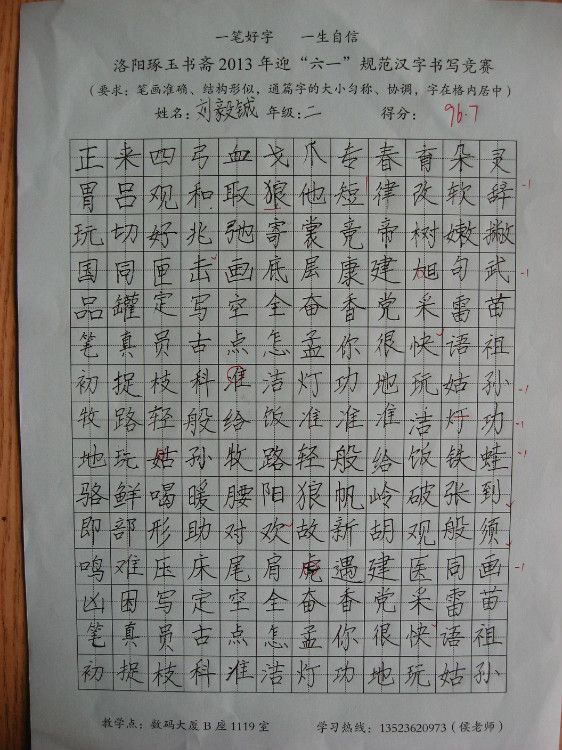 一笔好字 一生自信
洛阳琢玉书斋2013年迎“六一”规范汉字书写竞赛
(要求：笔画准确、结构形似，通篇字的大小匀称、协调，字在格内居中)
姓名：刘毅铖 年级：二 得分：96.7
正来四弓血戈爪专春育朵灵
胃吕观和取狼他短律改软辞 -1
玩切好兆弛寄裳竟帝树嫩撇
国同匣击画底层康建旭句武 -1
品罐定写空全奋香党采雷苗
笔真员古点怎孟你很快语祖
初捉枝科准洁灯功地玩姑孙 -1
牧路轻般给饭准准准洁灯功 -1
地玩姑孙牧路轻般给饭铁蛙 -1
骆鲜喝暖腰阳狼帆岭破张到
即部形助对欢故新胡观般须
鸣难压床尾肩虎遇建医同画 -1
凶困写定空全奋香党采雷苗
笔真员古点怎孟你很快语祖
初捉枝科准洁灯功地玩姑孙
教学点：数码大厦B座1119室 学习热线：13523620973(侯老师)